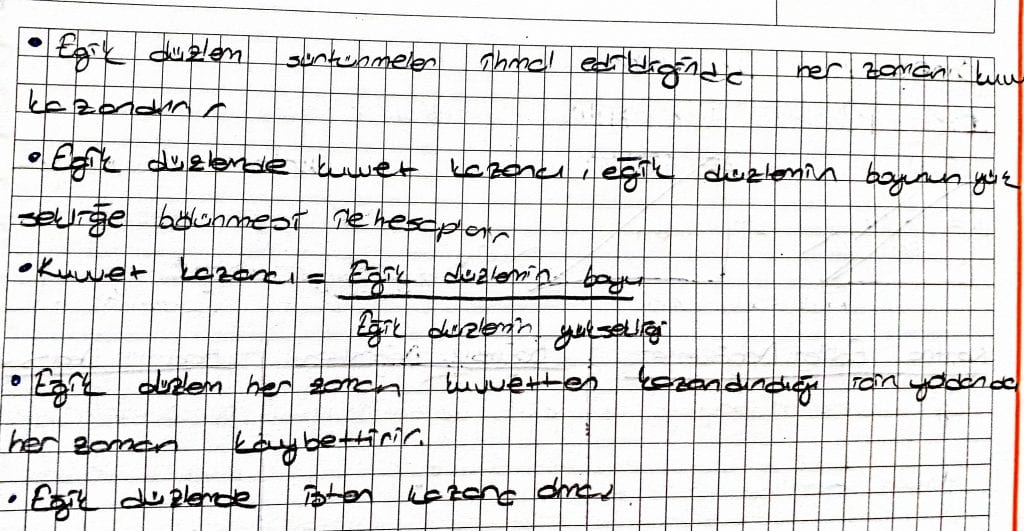 • Eğik düzlem sürtünmeler ihmal edildiğinde her zaman kuv
kazandırır
• Eğik düzlemde kuvvet kazancı, eğik düzlemin boyunun yük
sekliğe bölünmesi ile hesaplanır
• Kuvvet kazancı = Eğik düzlemin boyu
Eğik düzlemin yüksekliği
• Eğik düzlem her zaman kuvvetten kazandırdığı için yoldanda
her zaman kaybettirir.
• Eğik düzlemde işten kazanç olmaz.